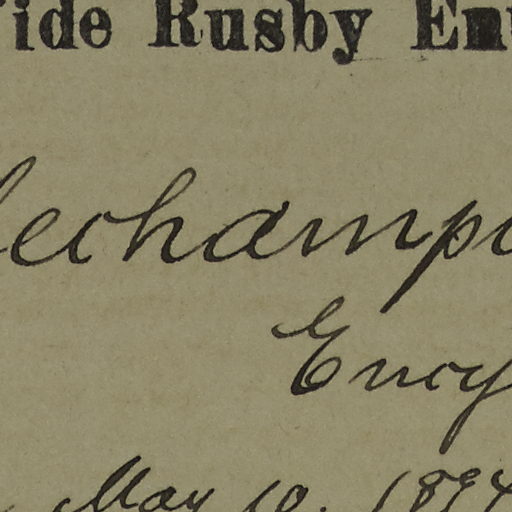 ide Rusby En
echamp
Ency
May 10. 1894